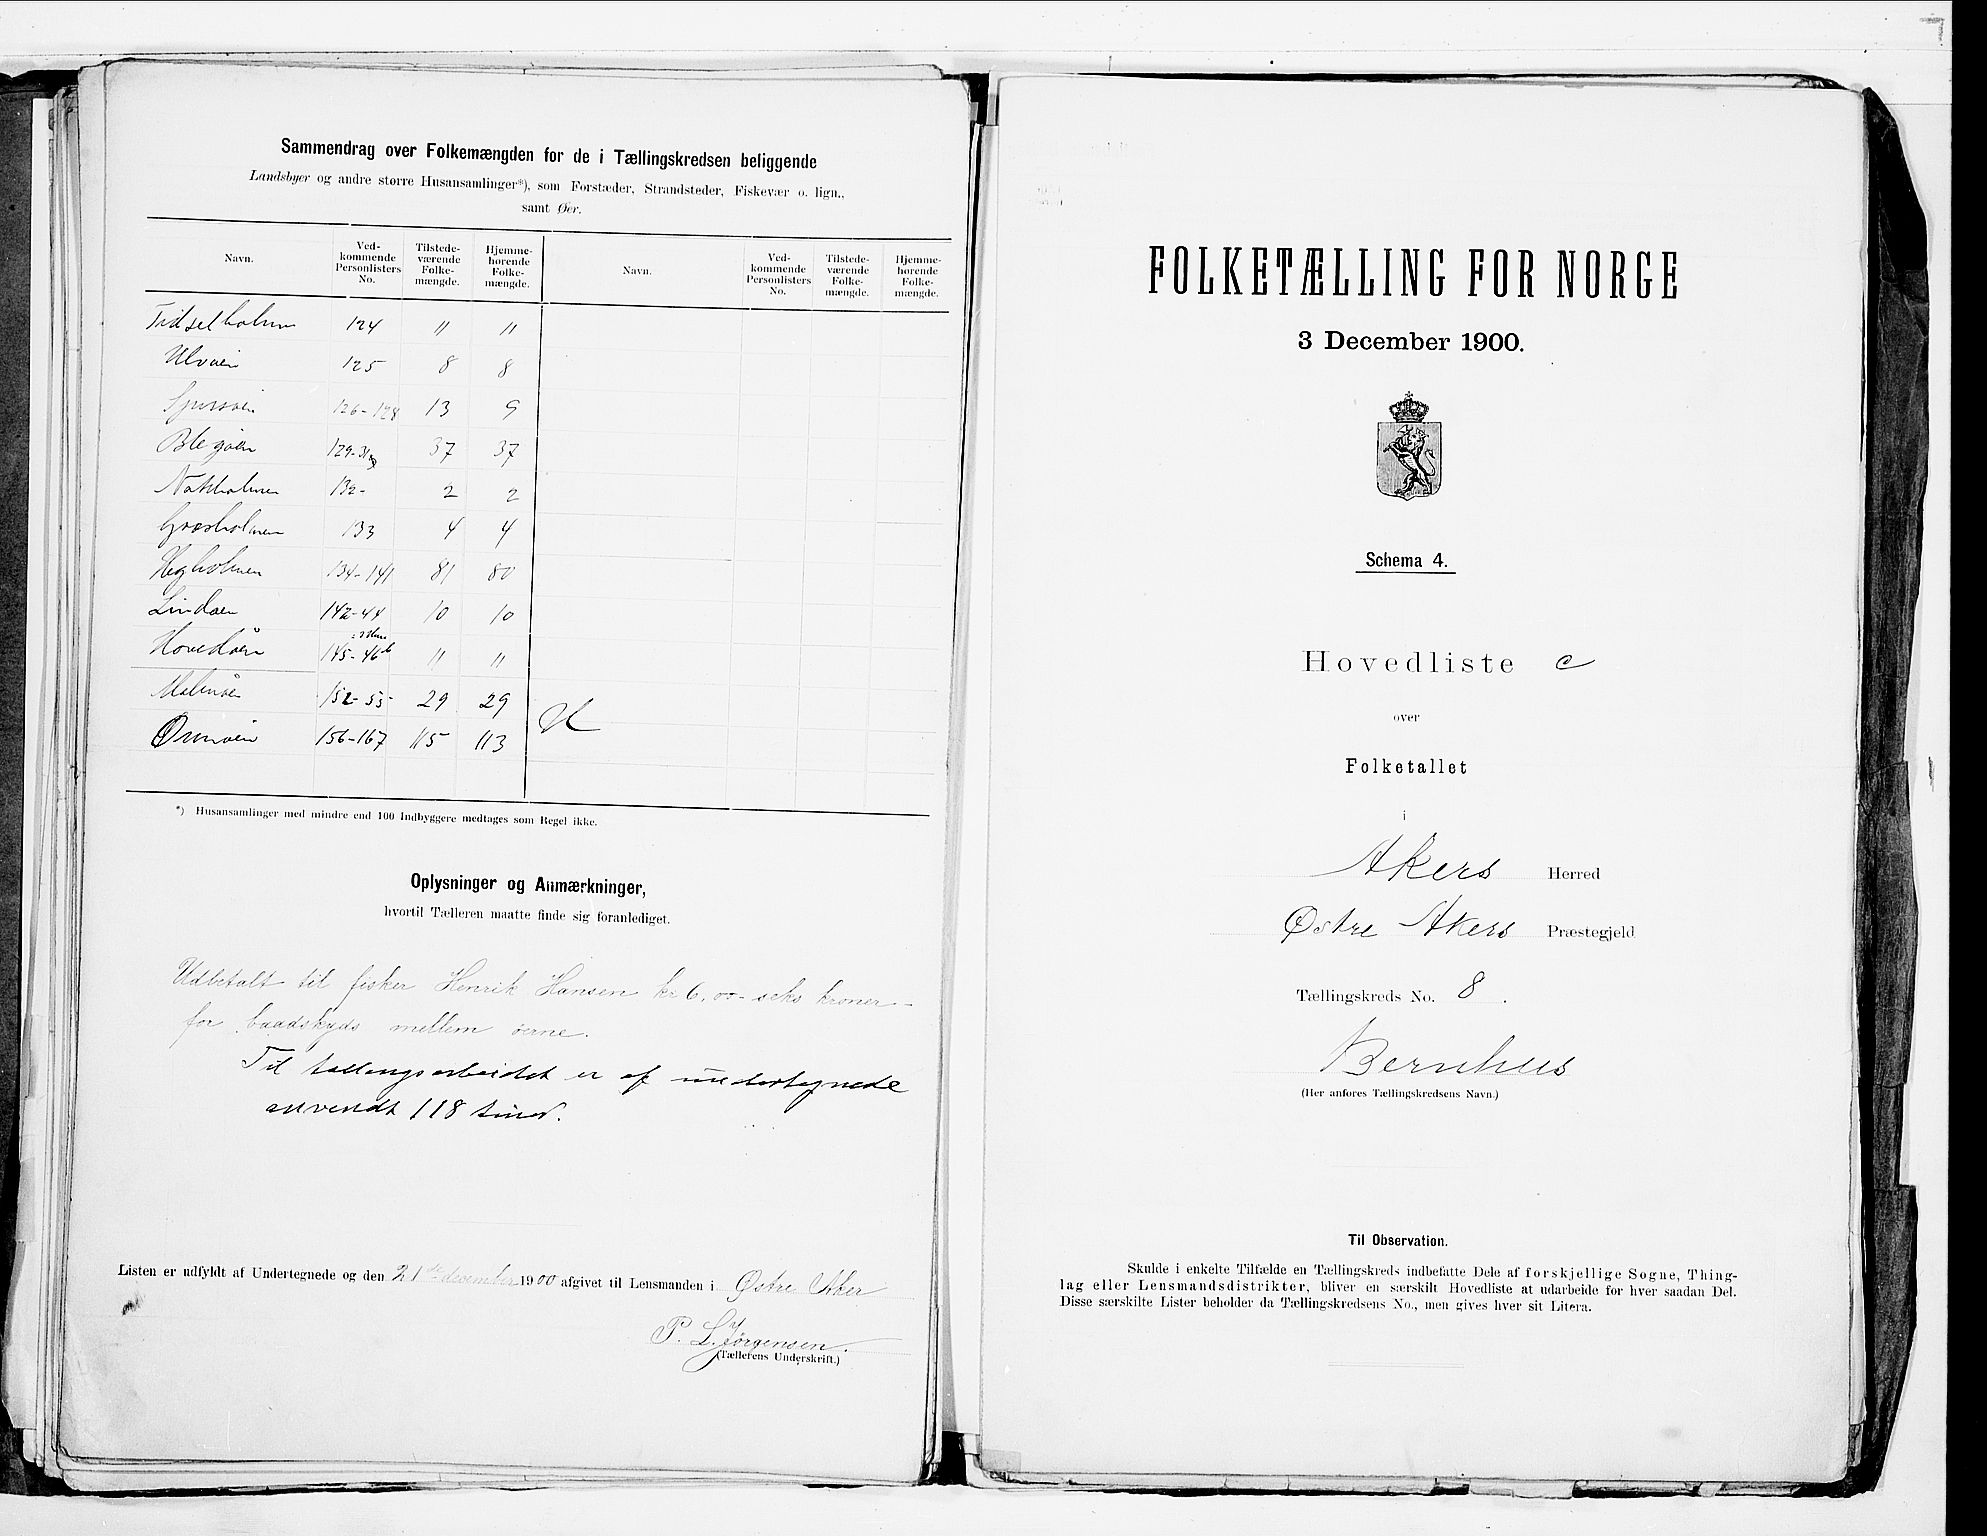 Sammendrag over Folkemængden for de i Tællingskredsen beliggende
Landsbyer og andre større Husansamlinger*), som Forstæder, Strandsteder, Fiskevær o. lign.,
samt Øer.
Navn. Ved-kommende Personlisters No. Tilstede-værende Folke-mængde. Hjemme-hørende Folke-mængde. Navn. Ved-kommende Personlisters No. Tilstede-værende Folke-mængde. Hjemme-hørende Folke-mængde.
124 11 11
Ulvøen 125 8 8
126-128 13 9
Blegøen 129-31 37 37
Nakholmen 132- 2 2
Græsholmen 133 4 4
Hegholmen 134-141 81 80
Lindøen 142-44 10 10
Hovedøen 145-46b 11 11
Malmøen 152-55 29 29
Ormøen 156-167 115 113
*) Husansamlinger med mindre end 100 Indbyggere medtages som Regel ikke.
Oplysninger og Anmærkninger,
hvortil Tælleren maatte finde sig foranlediget.
Udbetalt til fisker Henrik Hansen kr 6,00 - seks kroner -
for baadskyds mellem øerne.
Til tællingsarbeidet er af undertegnede
anvendt 118 timer.
Listen er udfyldt af Undertegnede og den 21de december 1900 afgivet til Lensmanden i Østre Aker
P. L. Jørgensen.
(Tællerens Underskrift.)
FOLKETÆLLING FOR NORGE
3 December 1900.
Schema 4.
Hovedliste c
over
Folketallet
i
Akers Herred
Østre Akers Præstegjeld
Tællingskreds No. 8.
Bernhus
(Her anføres Tællingskredsens Navn.)
Til Observation.
Skulde i enkelte Tilfælde en Tællingskreds indbefatte Dele af forskjellige Sogne, Thing-
lag eller Lensmandsdistrikter, bliver en særskilt Hovedliste at udarbeide for hver saadan Del.
Disse særskilte Lister beholder da Tællingskredsens No., men gives hver sit Litera.